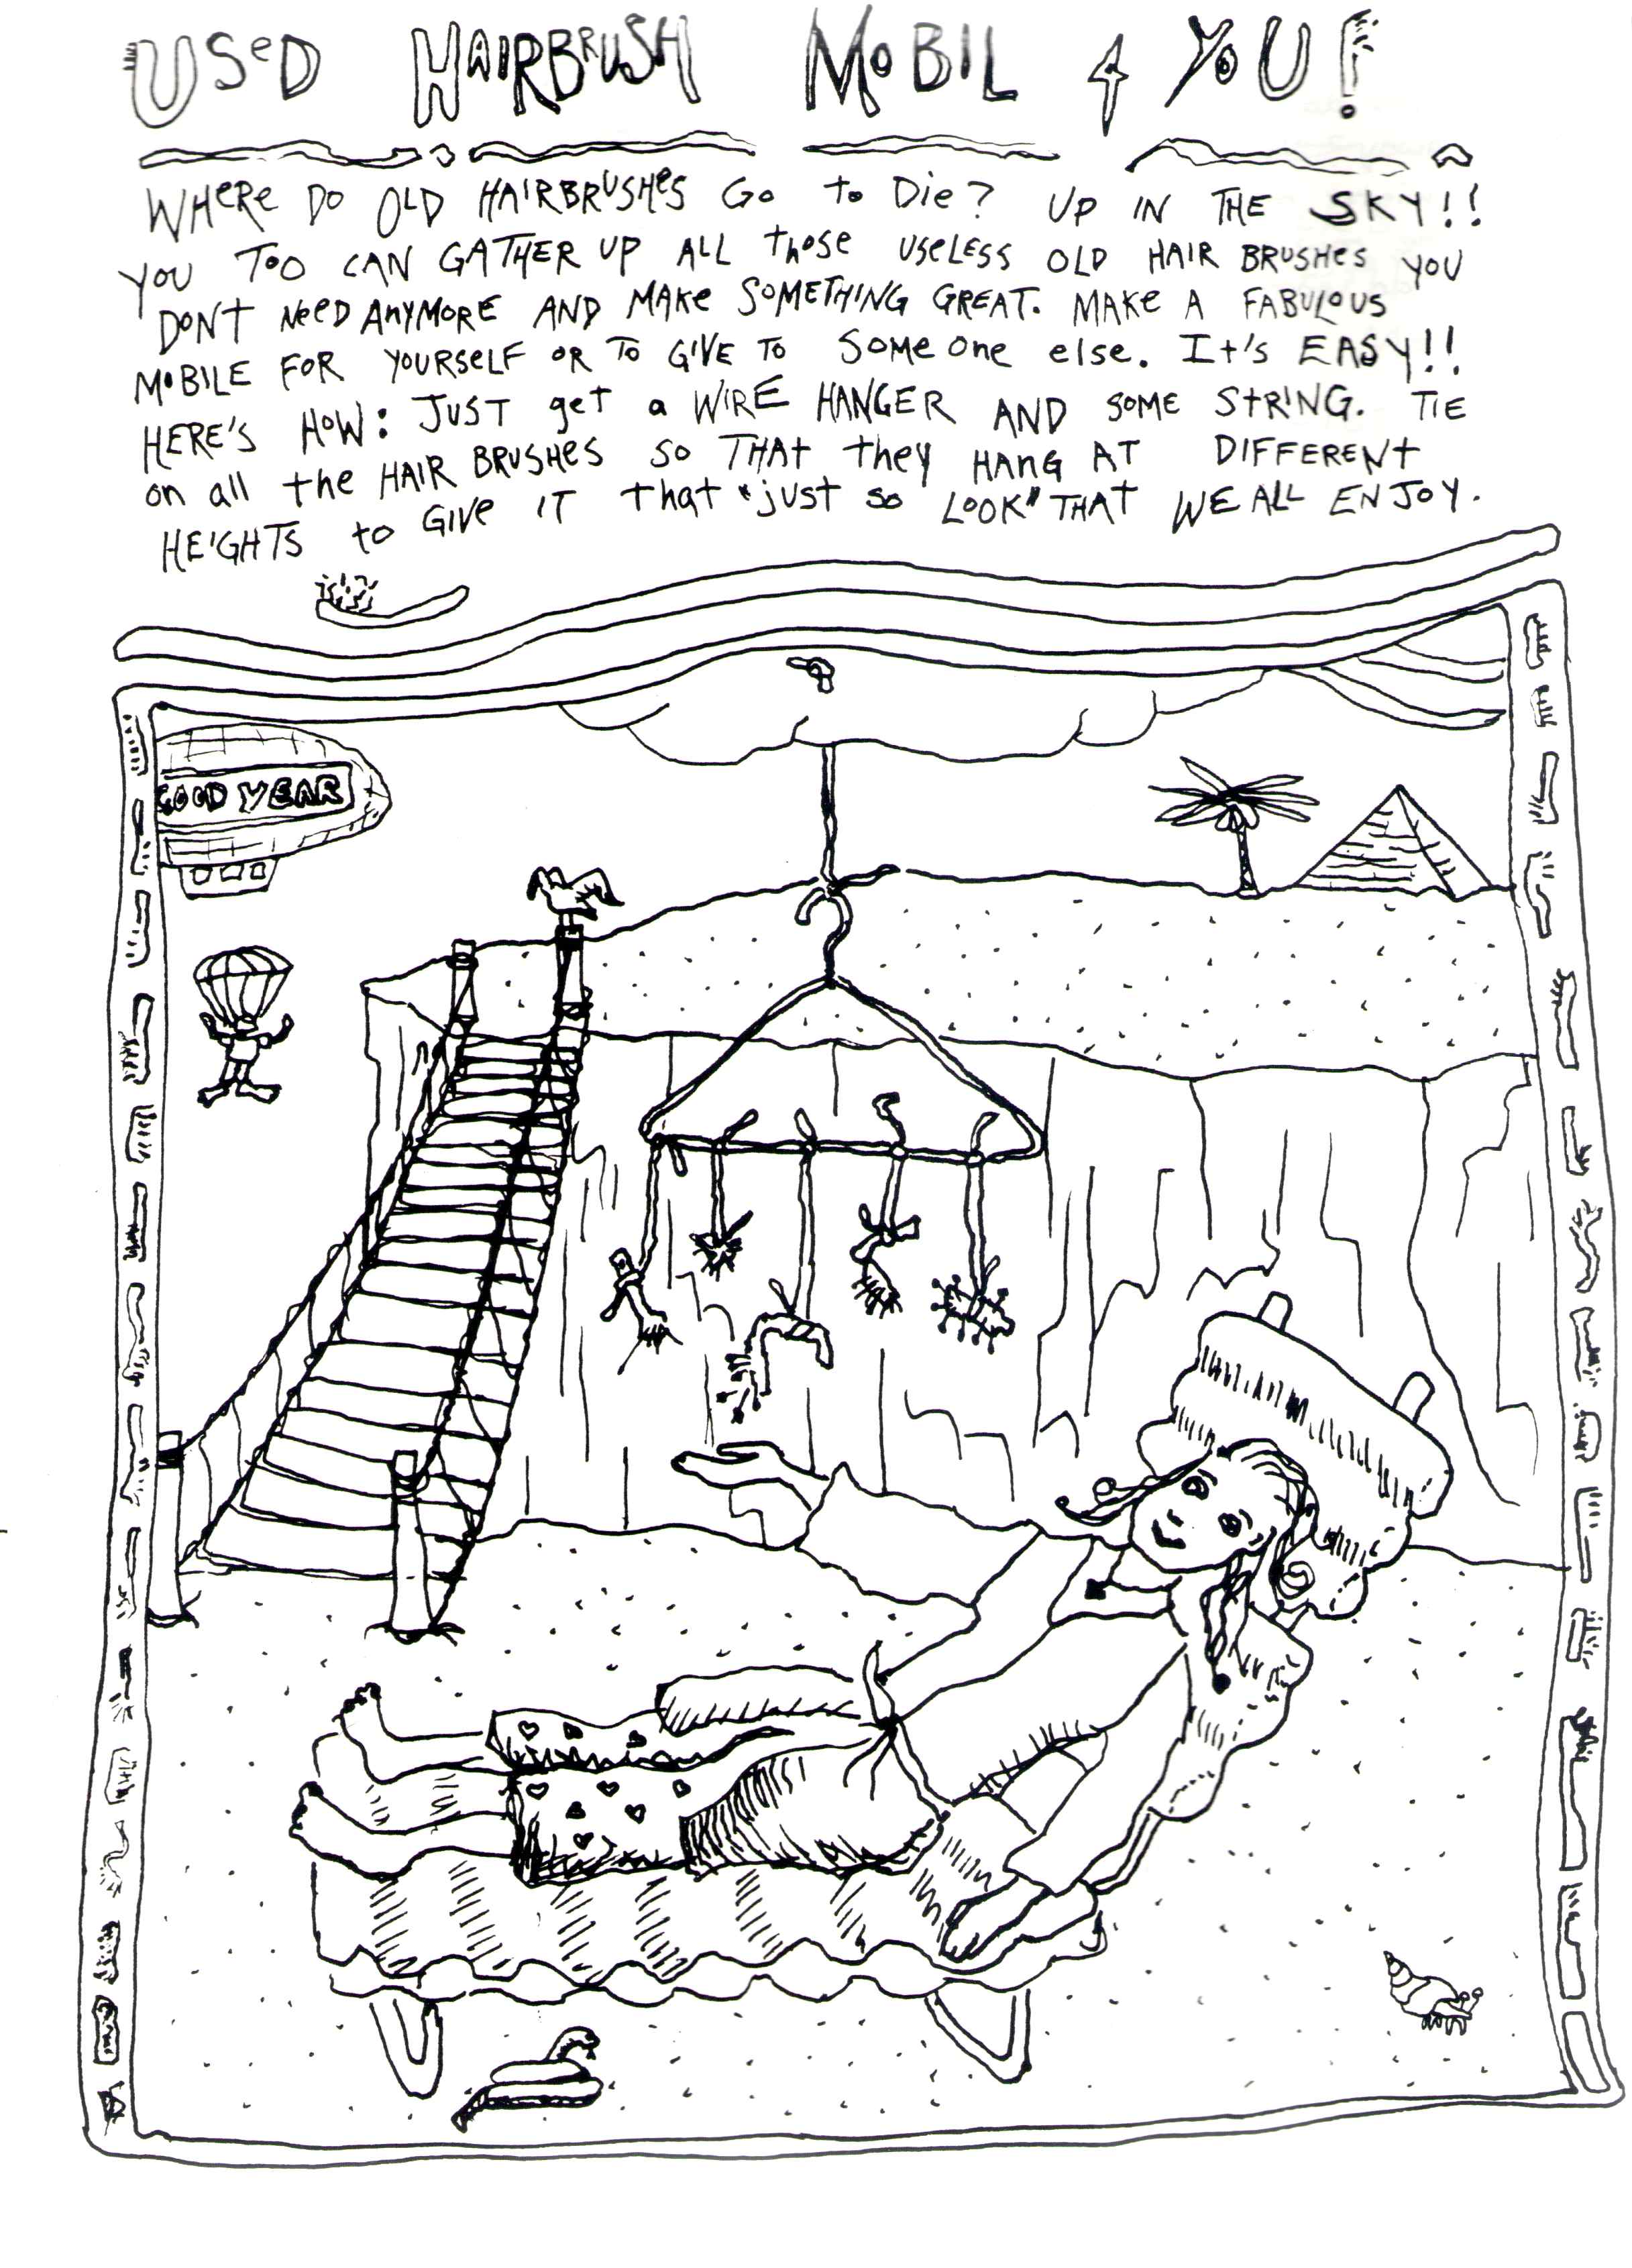 USeD HAIRBRUSH MOBIL 4 YOU!
WHeRe DO OLD HAIRBRUSHeS Go to Die? UP IN THE SKY!!
YOU TOO CAN GATHER UP ALL those USeLESS OLD HAIR BRUSHes YOU
DON'T NeeD ANYMORE AND MAKe SOMETHING GREAT. MAKe A FABULOUS
MOBILE FOR YOURSeLF OR TO GIVE TO Some one else. It's EASY!!
HERE'S HOW: JUST get a WIRE HANGER AND SOME STRING. TIE
on all the HAIR BRUSHes so THAt they HANG AT DIFFERENt
HEIGHTS to GIVe IT that "just so LOOK" THAT WE ALL ENJOY.
GOOD YEAR